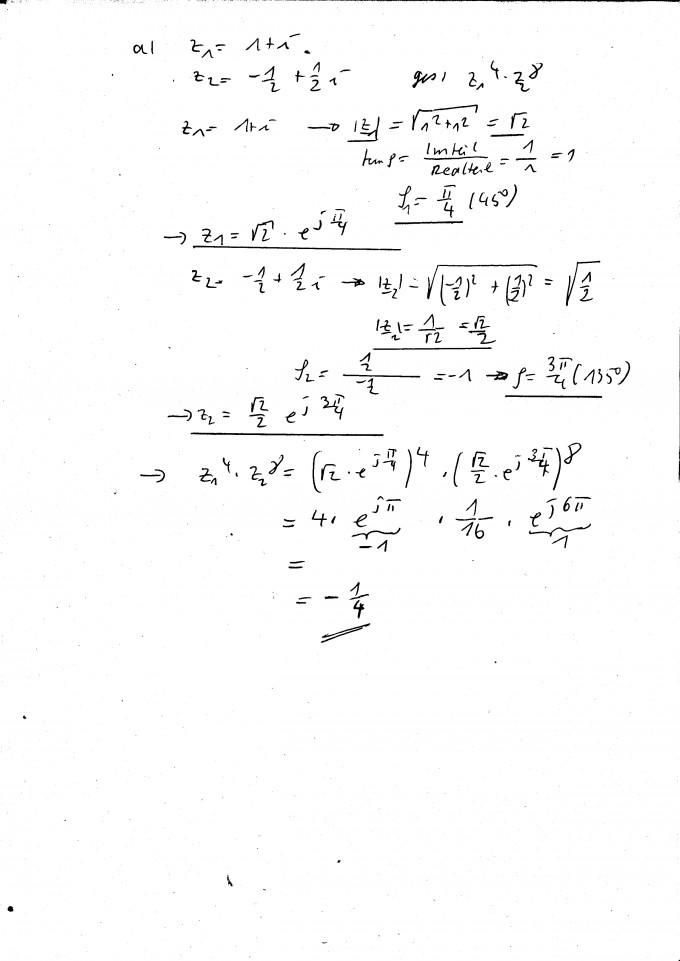 a) z₁ = 1+i .
z₂ = -1/2 + 1/2 i ges: z₁⁴ · z₂⁸
z₁ = 1+i → |z₁| = √(1²+1²) = √2
tan φ = Imteil/Realteil = 1/1 = 1
φ₁ = π/4 (45°)
→ z₁ = √2 · e^(j π/4)
z₂ = -1/2 + 1/2 i → |z₂| = √((-1/2)² + (1/2)²) = √(1/2)
|z₂| = 1/√2 = √2/2
φ₂ = (1/2)/(-1/2) = -1 → φ = 3π/4 (135°)
→ z₂ = √2/2 e^(j 3π/4)
→ z₁⁴ · z₂⁸ = (√2 · e^(j π/4))⁴ · (√2/2 · e^(j 3π/4))⁸
= 4 · e^(jπ) · 1/16 · e^(j6π)
-1 1
=
= - 1/4